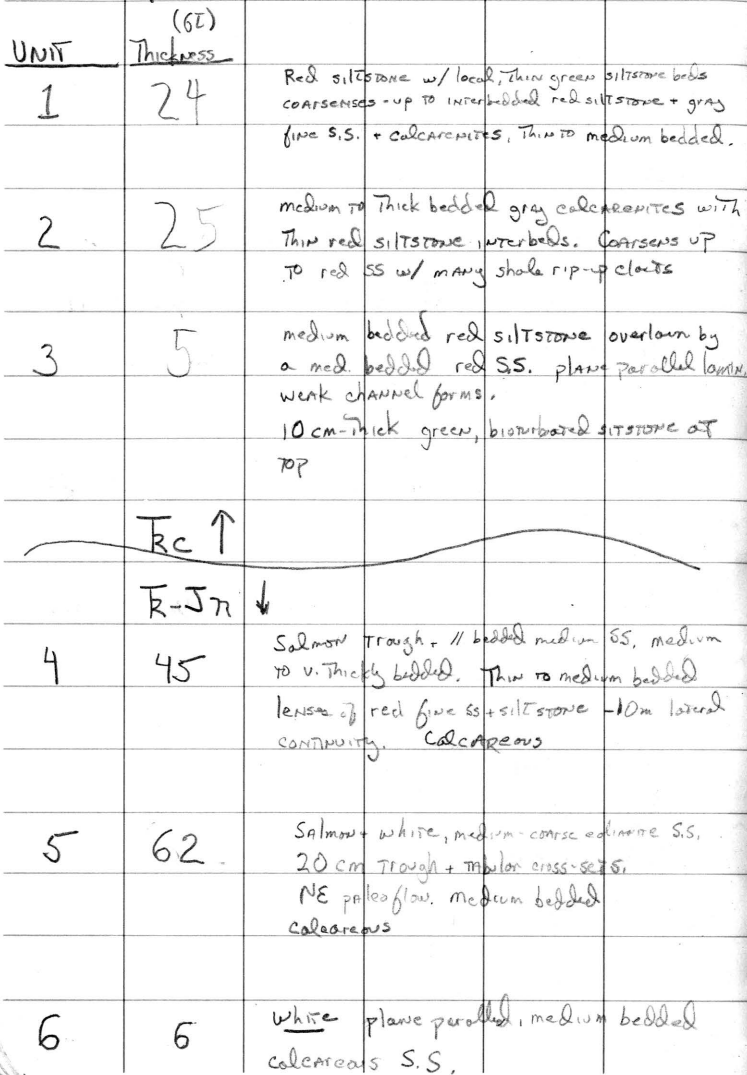 (ft)
UNIT Thickness
1 24 Red siltstone w/ local, thin green siltstone beds
coarsenses-up to interbedded red siltstone + gray
fine S.S. + calcarenites, Thin to medium bedded.
2 25 medium to Thick bedded gray calcarenites with
Thin red siltstone interbeds. Coarsens up
to red SS w/ many shale rip-up clasts
3 5 medium bedded red siltstone overlain by
a med. bedded red S.S. plane parallel lamin.
weak channel forms.
10 cm-Thick green, bioturbated sitstone at
top
Ꞧc ↑
Ꞧ-Jn ↓
4 45 Salmon Trough + // bedded medium SS, medium
to v. Thickly bedded. Thin to medium bedded
lenses of red fine ss + siltstone ~10m lateral
continuity. Calcareous
5 62 Salmon + white, medium-coarse S.S.
20 cm Trough + tabular cross-sets.
NE paleoflow. medium bedded
calcareous
6 6 White plane parallel, medium bedded
calcareous S.S.